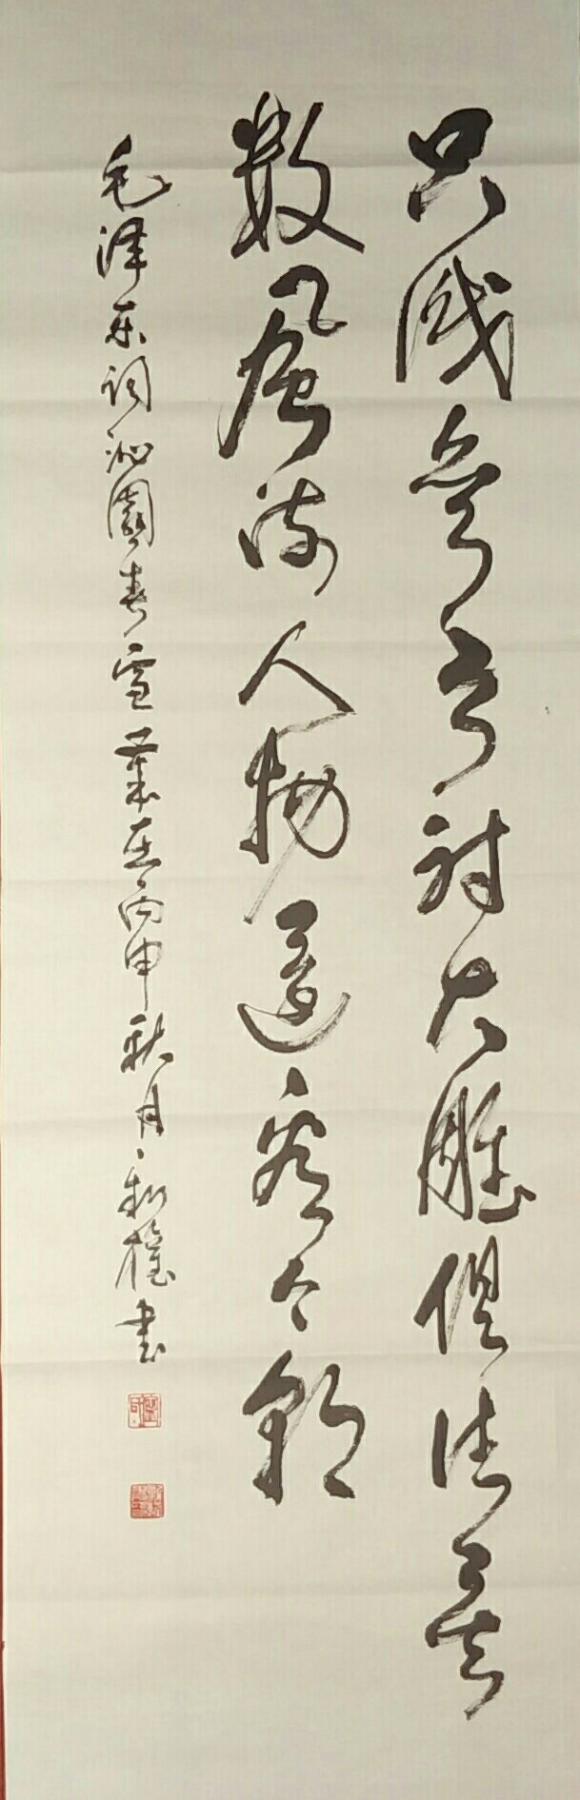 只识弯弓射大雕俱往矣
数风流人物还看今朝
毛泽东词沁園春雪 岁在丙申秋月 书